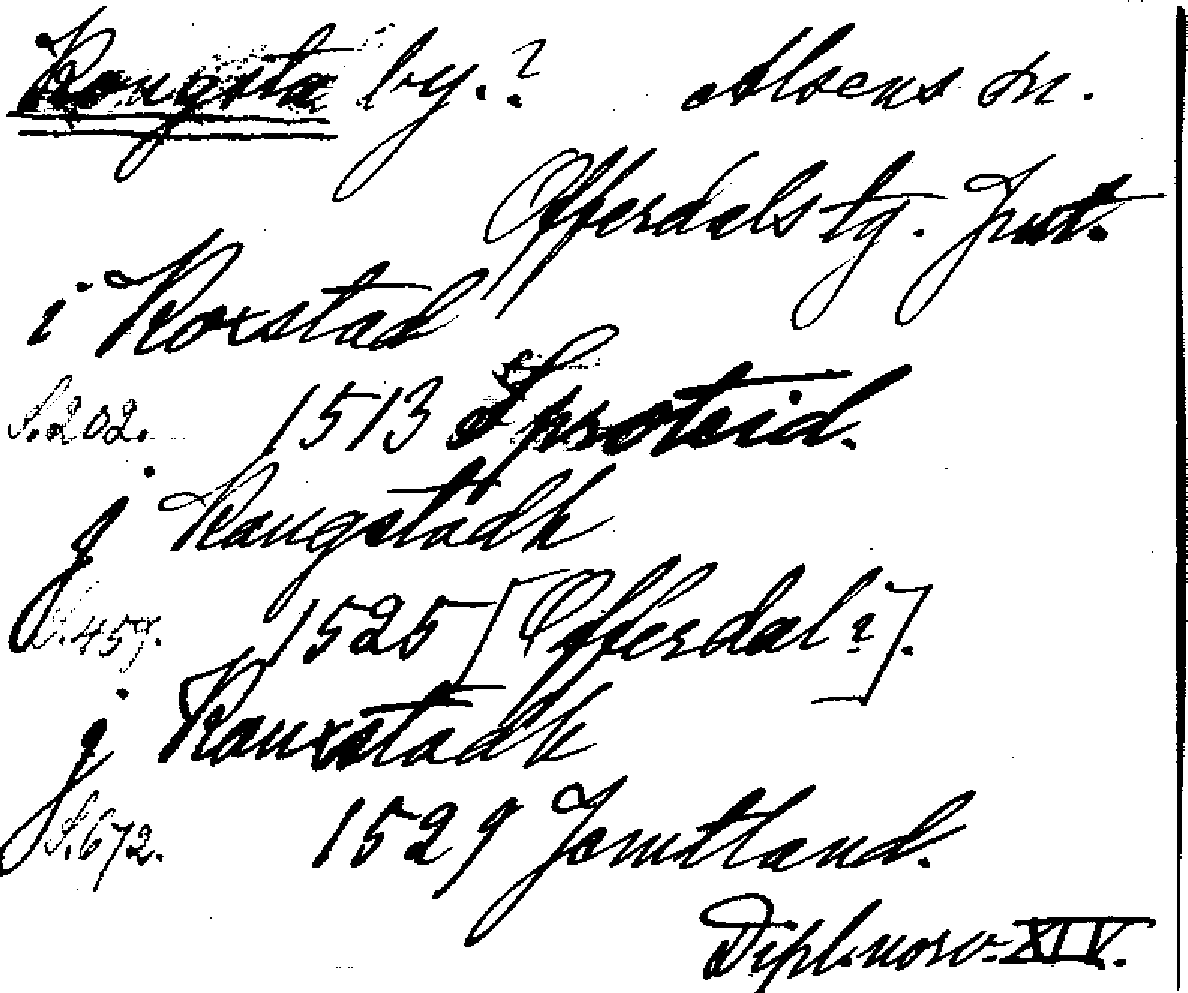 Rougsta by.? Alsens sn.
Offerdals tg. Jmt.
i Roxstad
S.202. 1513 Sproteid.
j Raugstadh
S.459. 1525 [Offerdal?].
j Rauxstadh
S.672. 1529 Jemtland.
Dipl. norv. XIV.